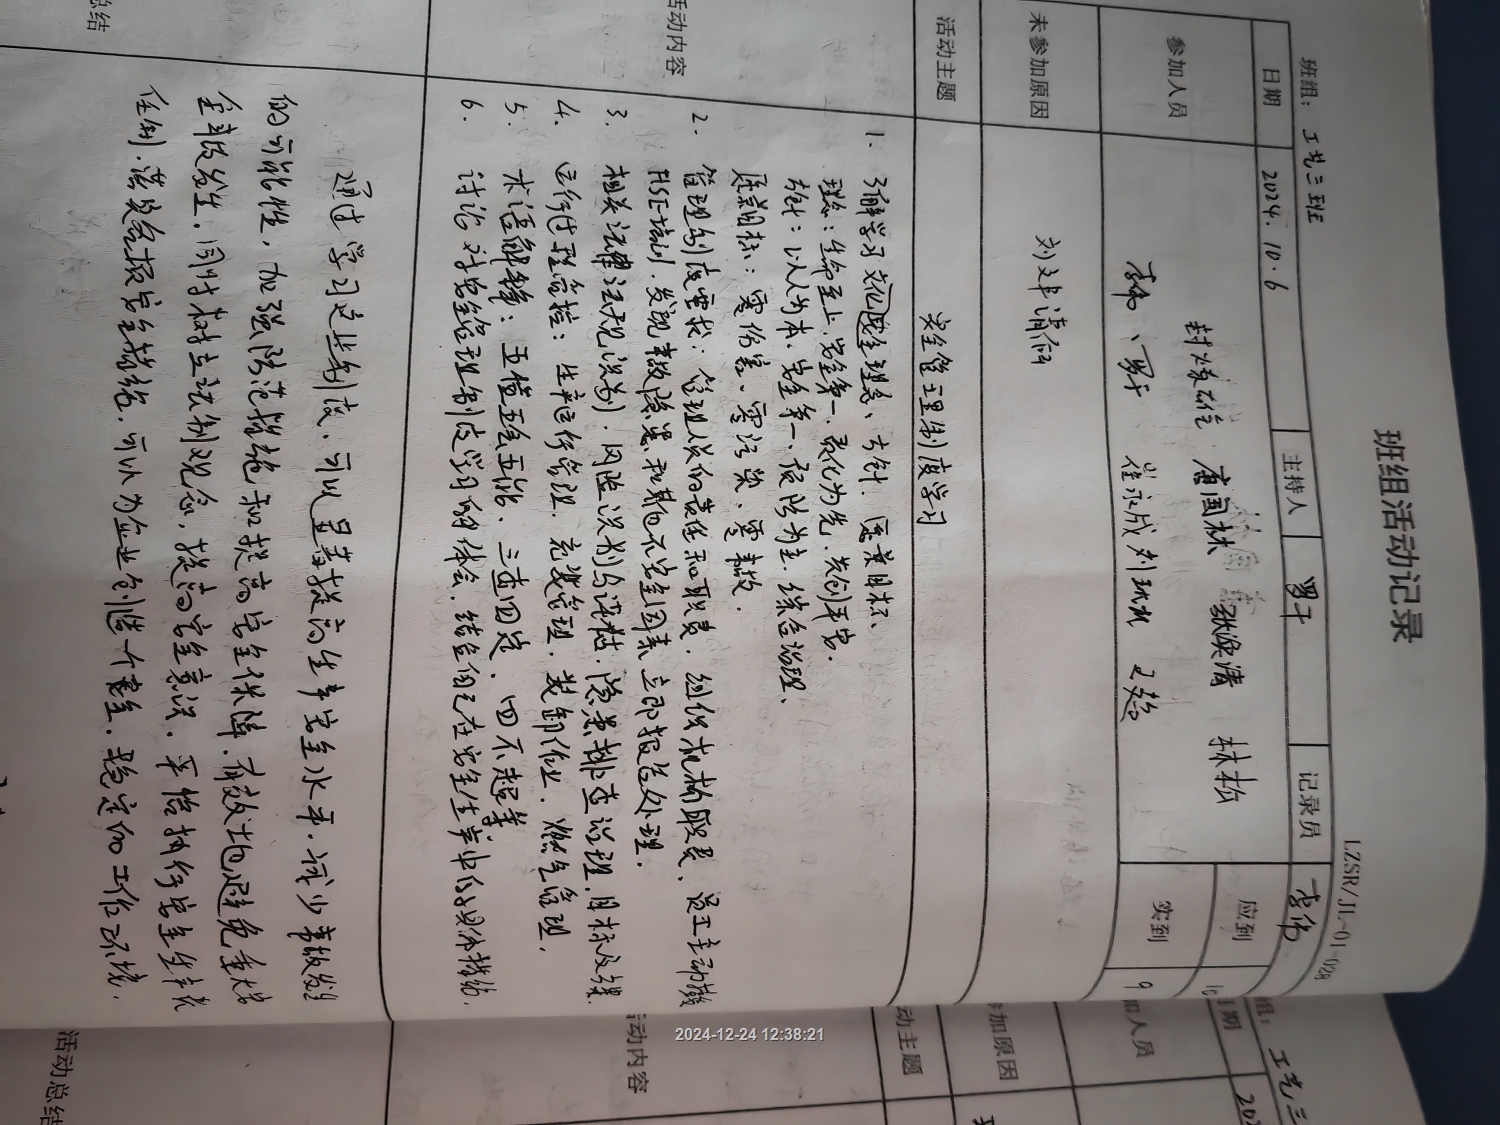 班组活动记录
LZSR/JL-01-028
班组：工艺三班
日期 2024.10.6 主持人 罗干 记录员 李伟
参加人员 唐国林 张焕清 林松 应到 10
李伟、罗干 崔永成 王超 实到 9
未参加原因 请假
活动主题 安全管理制度学习
活动内容
1. 了解学习文化理念、方针、愿景目标、
理念：生命至上，安全第一，文化为先，共创平安.
方针：以人为本、安全第一、预防为主、综合治理、
愿景目标：零伤害、零污染、零事故.
2. 管理制度要求：管理人员的责任和职责，组织机构职责、员工主动参
HSE培训，发现事故隐患和其他不安全因素立即报告处理.
3. 相关法律法规识别，风险识别与评估，隐患排查治理，目标及
4. 运行过程管控：生产运行管理，充装管理，装卸作业，燃气管理.
5. 术语解释：五懂五会五能、三查四定，四不超等
6. 讨论对安全管理制度学习的体会，结合自己在安全生产中的具体措施.
活动总结
通过学习这些制度，可以显著提高生产安全水平，减少事故发生
的可能性，加强防范措施和提高安全保障，有效地避免重大
全事故发生，同时树立法制观念，提高安全意识，严格执行安全生产责
任制，落实各项安全措施，可以为企业创造一个安全，稳定的工作环境.
2024-12-24 12:38:21
组：工艺三
日期 202
加人员
参加原因
动主题
活动内容
活动总结